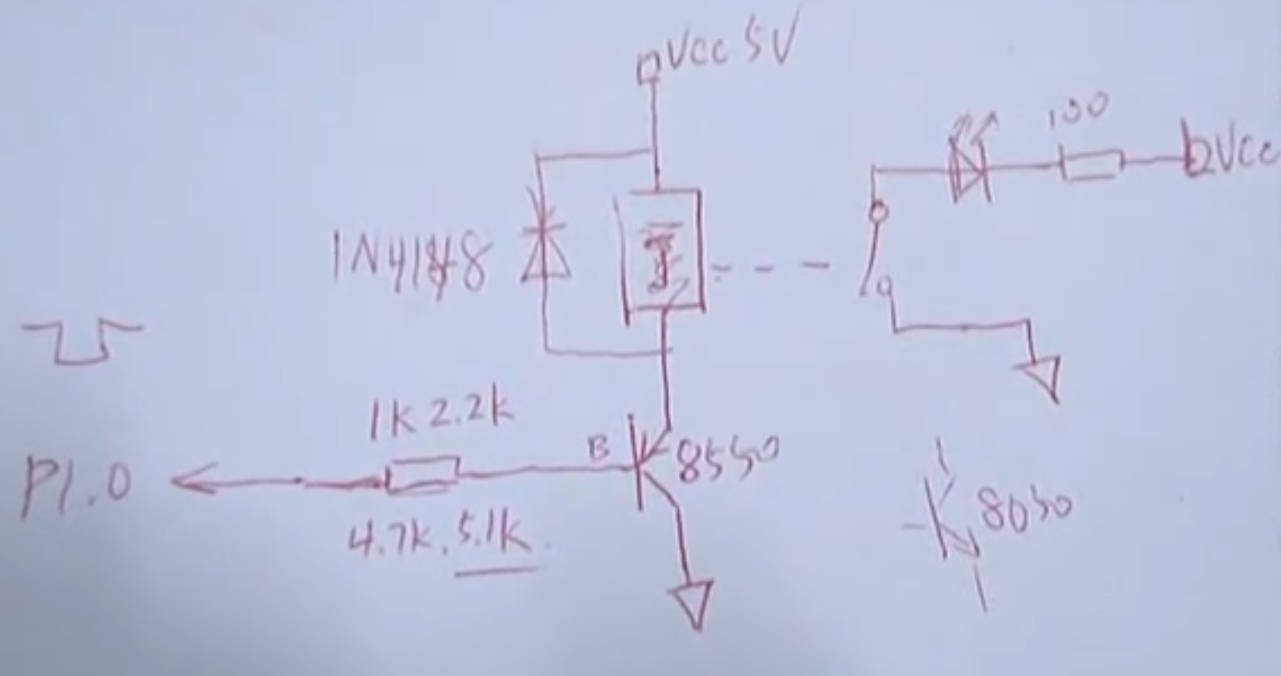 Vcc 5V
100
Vcc
1N4148
1K 2.2K
B
8550
P1.0
4.7K. 5.1K.
8050